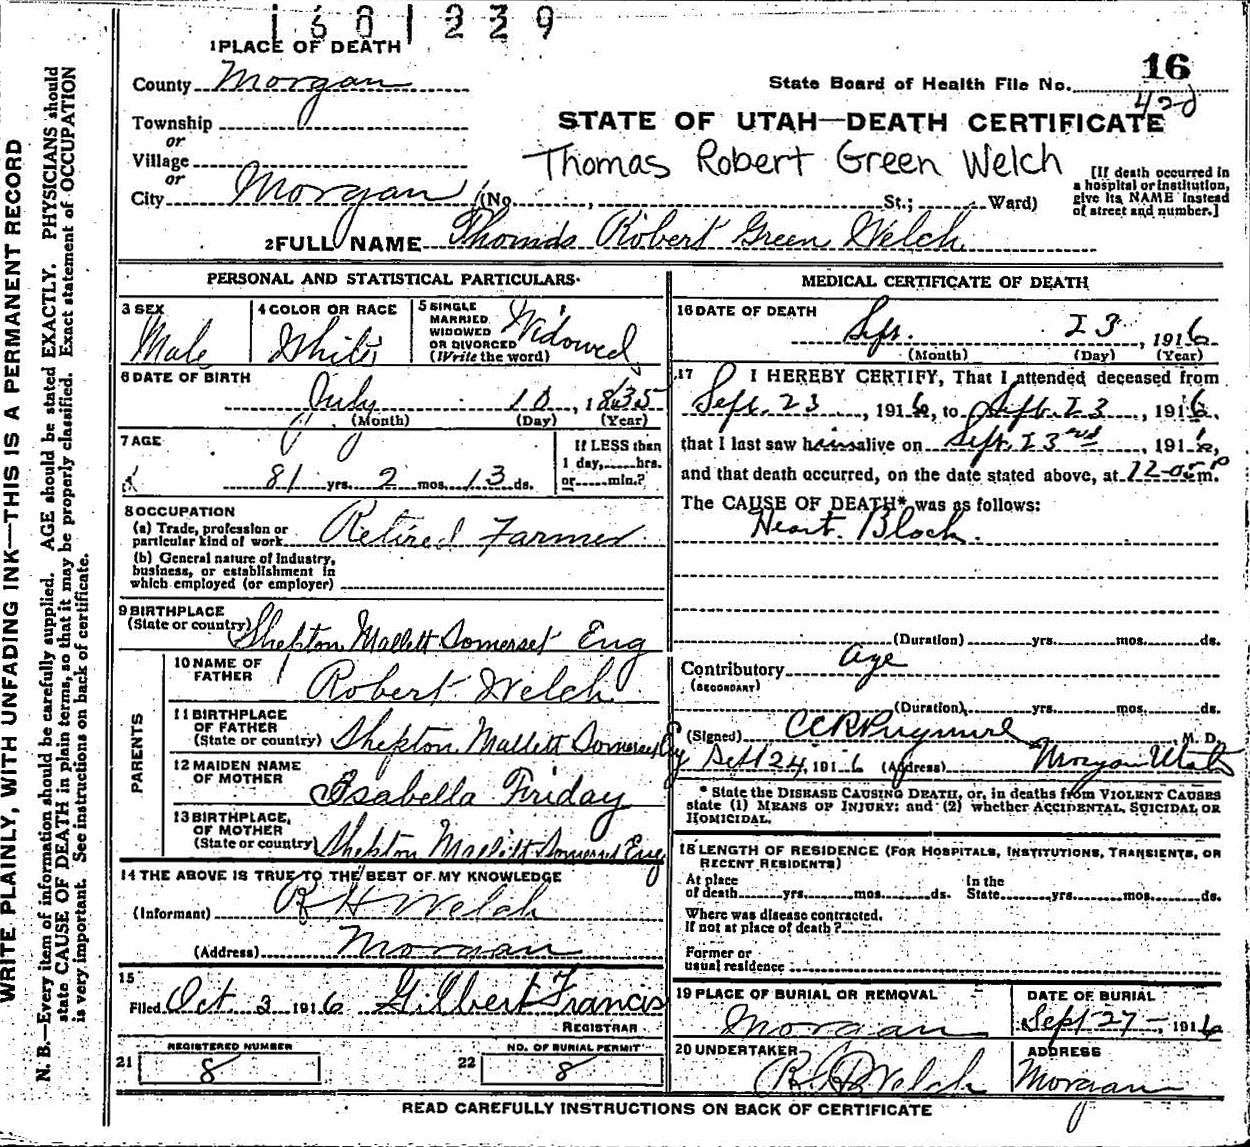 1601229
1 PLACE OF DEATH
County Morgan
State Board of Health File No. 16
420
Township
or
Village
or
City Morgan (No. , St.; Ward)
STATE OF UTAH—DEATH CERTIFICATE
Thomas Robert Green Welch
[If death occurred in
a hospital or institution,
give its NAME instead
of street and number.]
2 FULL NAME Thomas Robert Green Welch
PERSONAL AND STATISTICAL PARTICULARS
3 SEX
Male
4 COLOR OR RACE
White
5 SINGLE
MARRIED
WIDOWED
OR DIVORCED
(Write the word)
Widowed
6 DATE OF BIRTH
July 10, 1835
(Month) (Day) (Year)
7 AGE
81 yrs. 2 mos. 13 ds.
If LESS than
1 day, hrs.
or min.?
8 OCCUPATION
(a) Trade, profession or
particular kind of work Retired Farmer
(b) General nature of industry,
business, or establishment in
which employed (or employer)
9 BIRTHPLACE
(State or country) Shepton Mallett Somerset Eng
PARENTS
10 NAME OF
FATHER Robert Welch
11 BIRTHPLACE
OF FATHER
(State or country) Shepton Mallett Somerset Eng
12 MAIDEN NAME
OF MOTHER Isabella Friday
13 BIRTHPLACE,
OF MOTHER
(State or country) Shepton Mallett Somerset Eng
14 THE ABOVE IS TRUE TO THE BEST OF MY KNOWLEDGE
(Informant) R H Welch
(Address) Morgan
15
Filed Oct 3 1916 Gilbert Francis
REGISTRAR
REGISTERED NUMBER
21 8
NO. OF BURIAL PERMIT
22 8
MEDICAL CERTIFICATE OF DEATH
16 DATE OF DEATH
Sept. 23, 1916
(Month) (Day) (Year)
17 I HEREBY CERTIFY, That I attended deceased from
Sept. 23, 1916, to Sept. 23, 1916,
that I last saw him alive on Sept. 23rd, 1916,
and that death occurred, on the date stated above, at 12-05 P m.
The CAUSE OF DEATH* was as follows:
Heart Block.
(Duration) yrs. mos. ds.
Contributory Age
(SECONDARY)
(Duration) yrs. mos. ds.
(Signed) M. D.
Sept 24, 1916 (Address) Morgan Utah
* State the DISEASE CAUSING DEATH, or, in deaths from VIOLENT CAUSES
state (1) MEANS OF INJURY; and (2) whether ACCIDENTAL, SUICIDAL OR
HOMICIDAL.
18 LENGTH OF RESIDENCE (FOR HOSPITALS, INSTITUTIONS, TRANSIENTS, OR
RECENT RESIDENTS)
At place
of death yrs. mos. ds.
In the
State yrs. mos. ds.
Where was disease contracted,
If not at place of death?
Former or
usual residence
19 PLACE OF BURIAL OR REMOVAL
Morgan
DATE OF BURIAL
Sept 27-, 1916
20 UNDERTAKER
Welch
ADDRESS
Morgan
READ CAREFULLY INSTRUCTIONS ON BACK OF CERTIFICATE
WRITE PLAINLY, WITH UNFADING INK—THIS IS A PERMANENT RECORD
N. B.—Every item of information should be carefully supplied. AGE should be stated EXACTLY. PHYSICIANS should
state CAUSE OF DEATH in plain terms, so that it may be properly classified. Exact statement of OCCUPATION
is very important. See instructions on back of certificate.